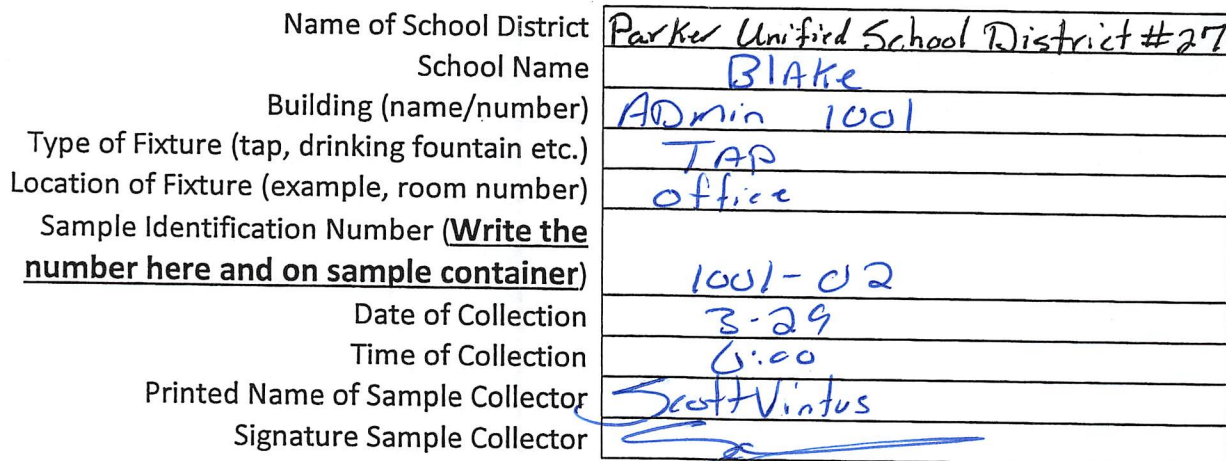 Name of School District Parker Unified School District #27
School Name BlAKe
Building (name/number) ADmin 1001
Type of Fixture (tap, drinking fountain etc.) TAP
Location of Fixture (example, room number) office
Sample Identification Number (Write the
number here and on sample container) 1001-02
Date of Collection 3-29
Time of Collection 6:00
Printed Name of Sample Collector Scott Vintus
Signature Sample Collector